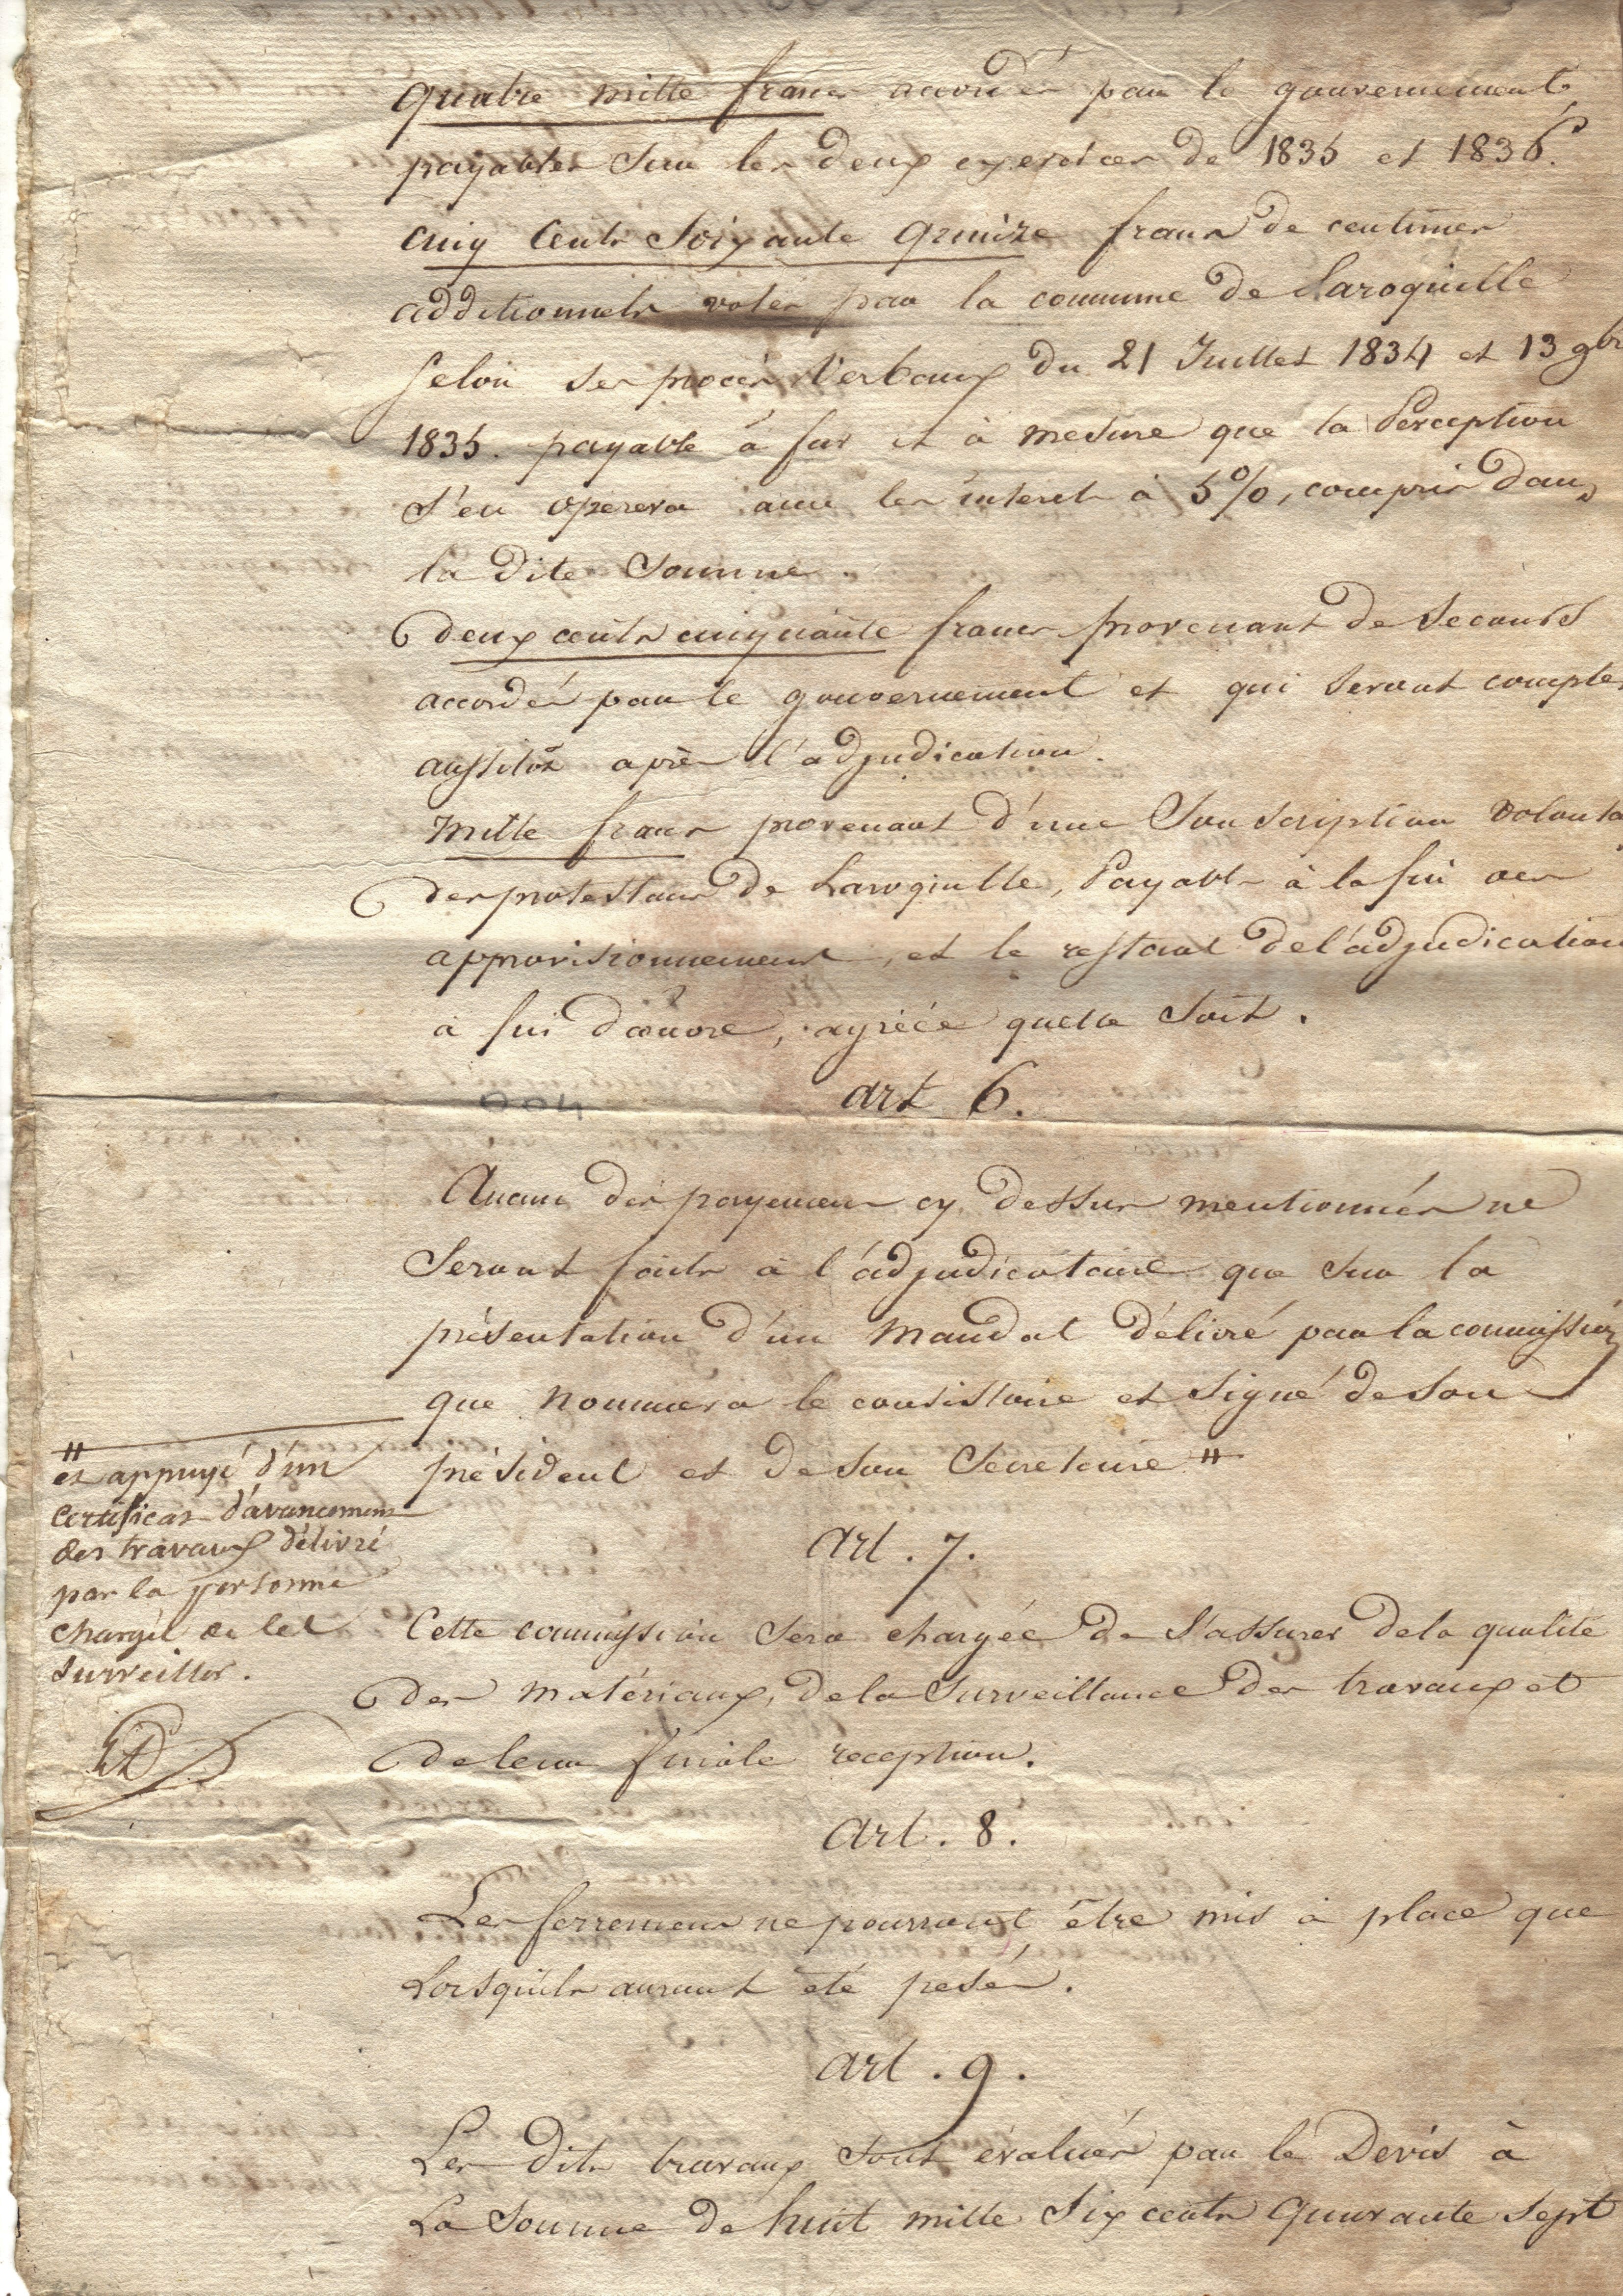 quatre mille francs accordés par le gouvernement,
payables sur les deux exercices de 1835 et 1836.
cinq cents soixante quinze francs de centimes
additionnels votés par la commune de Laroquille
selon ses procès verbaux du 21 Juillet 1834 et 13 9bre
1835. payable à fur et à mesure que la Perception
s'en operera avec les interets à 5%, compris dans
la dite Somme.
deux cents cinquante francs provenant de secours
accordés par le gouvernement et qui seront comptés
aussitôt après l'adjudication.
Mille francs provenant d'une Souscription volonta
des protestans de Laroquille, Payable à la fin des
approvisionnement, et le restant de l'adjudication
à fin d'œuvre, agréée quelle soit.
art 6.
Aucun des payemens cy dessus mentionnés ne
seront faits à l'adjudicataire que sur la
présentation d'un Mandat délivré par la commission
que nommera le consistoire et signé de son
président et de son Secretaire #
# et appuyé d'un
certificat d'avancement
des travaux délivré
par la personne
chargée de les
surveiller.
Art. 7.
Cette commission sera chargée de s'assurer de la qualité
des matériaux, de la surveillance des travaux et
de leur finale reception.
Art. 8.
Les ferremens ne pourront être mis à place que
Lorsqu'ils auront été pesés.
Art. 9.
Les dits travaux sont évalués par le Devis à
La Somme de huit mille six cents quarante sept